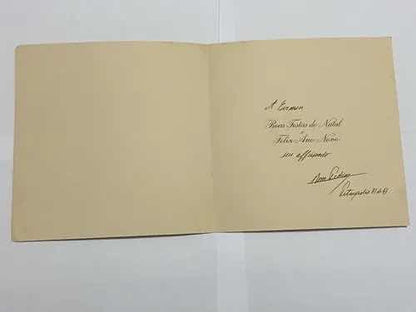 A Carmen
Boas Festas de Natal
e
Feliz Ano Novo
seu affilhado
Petropolis